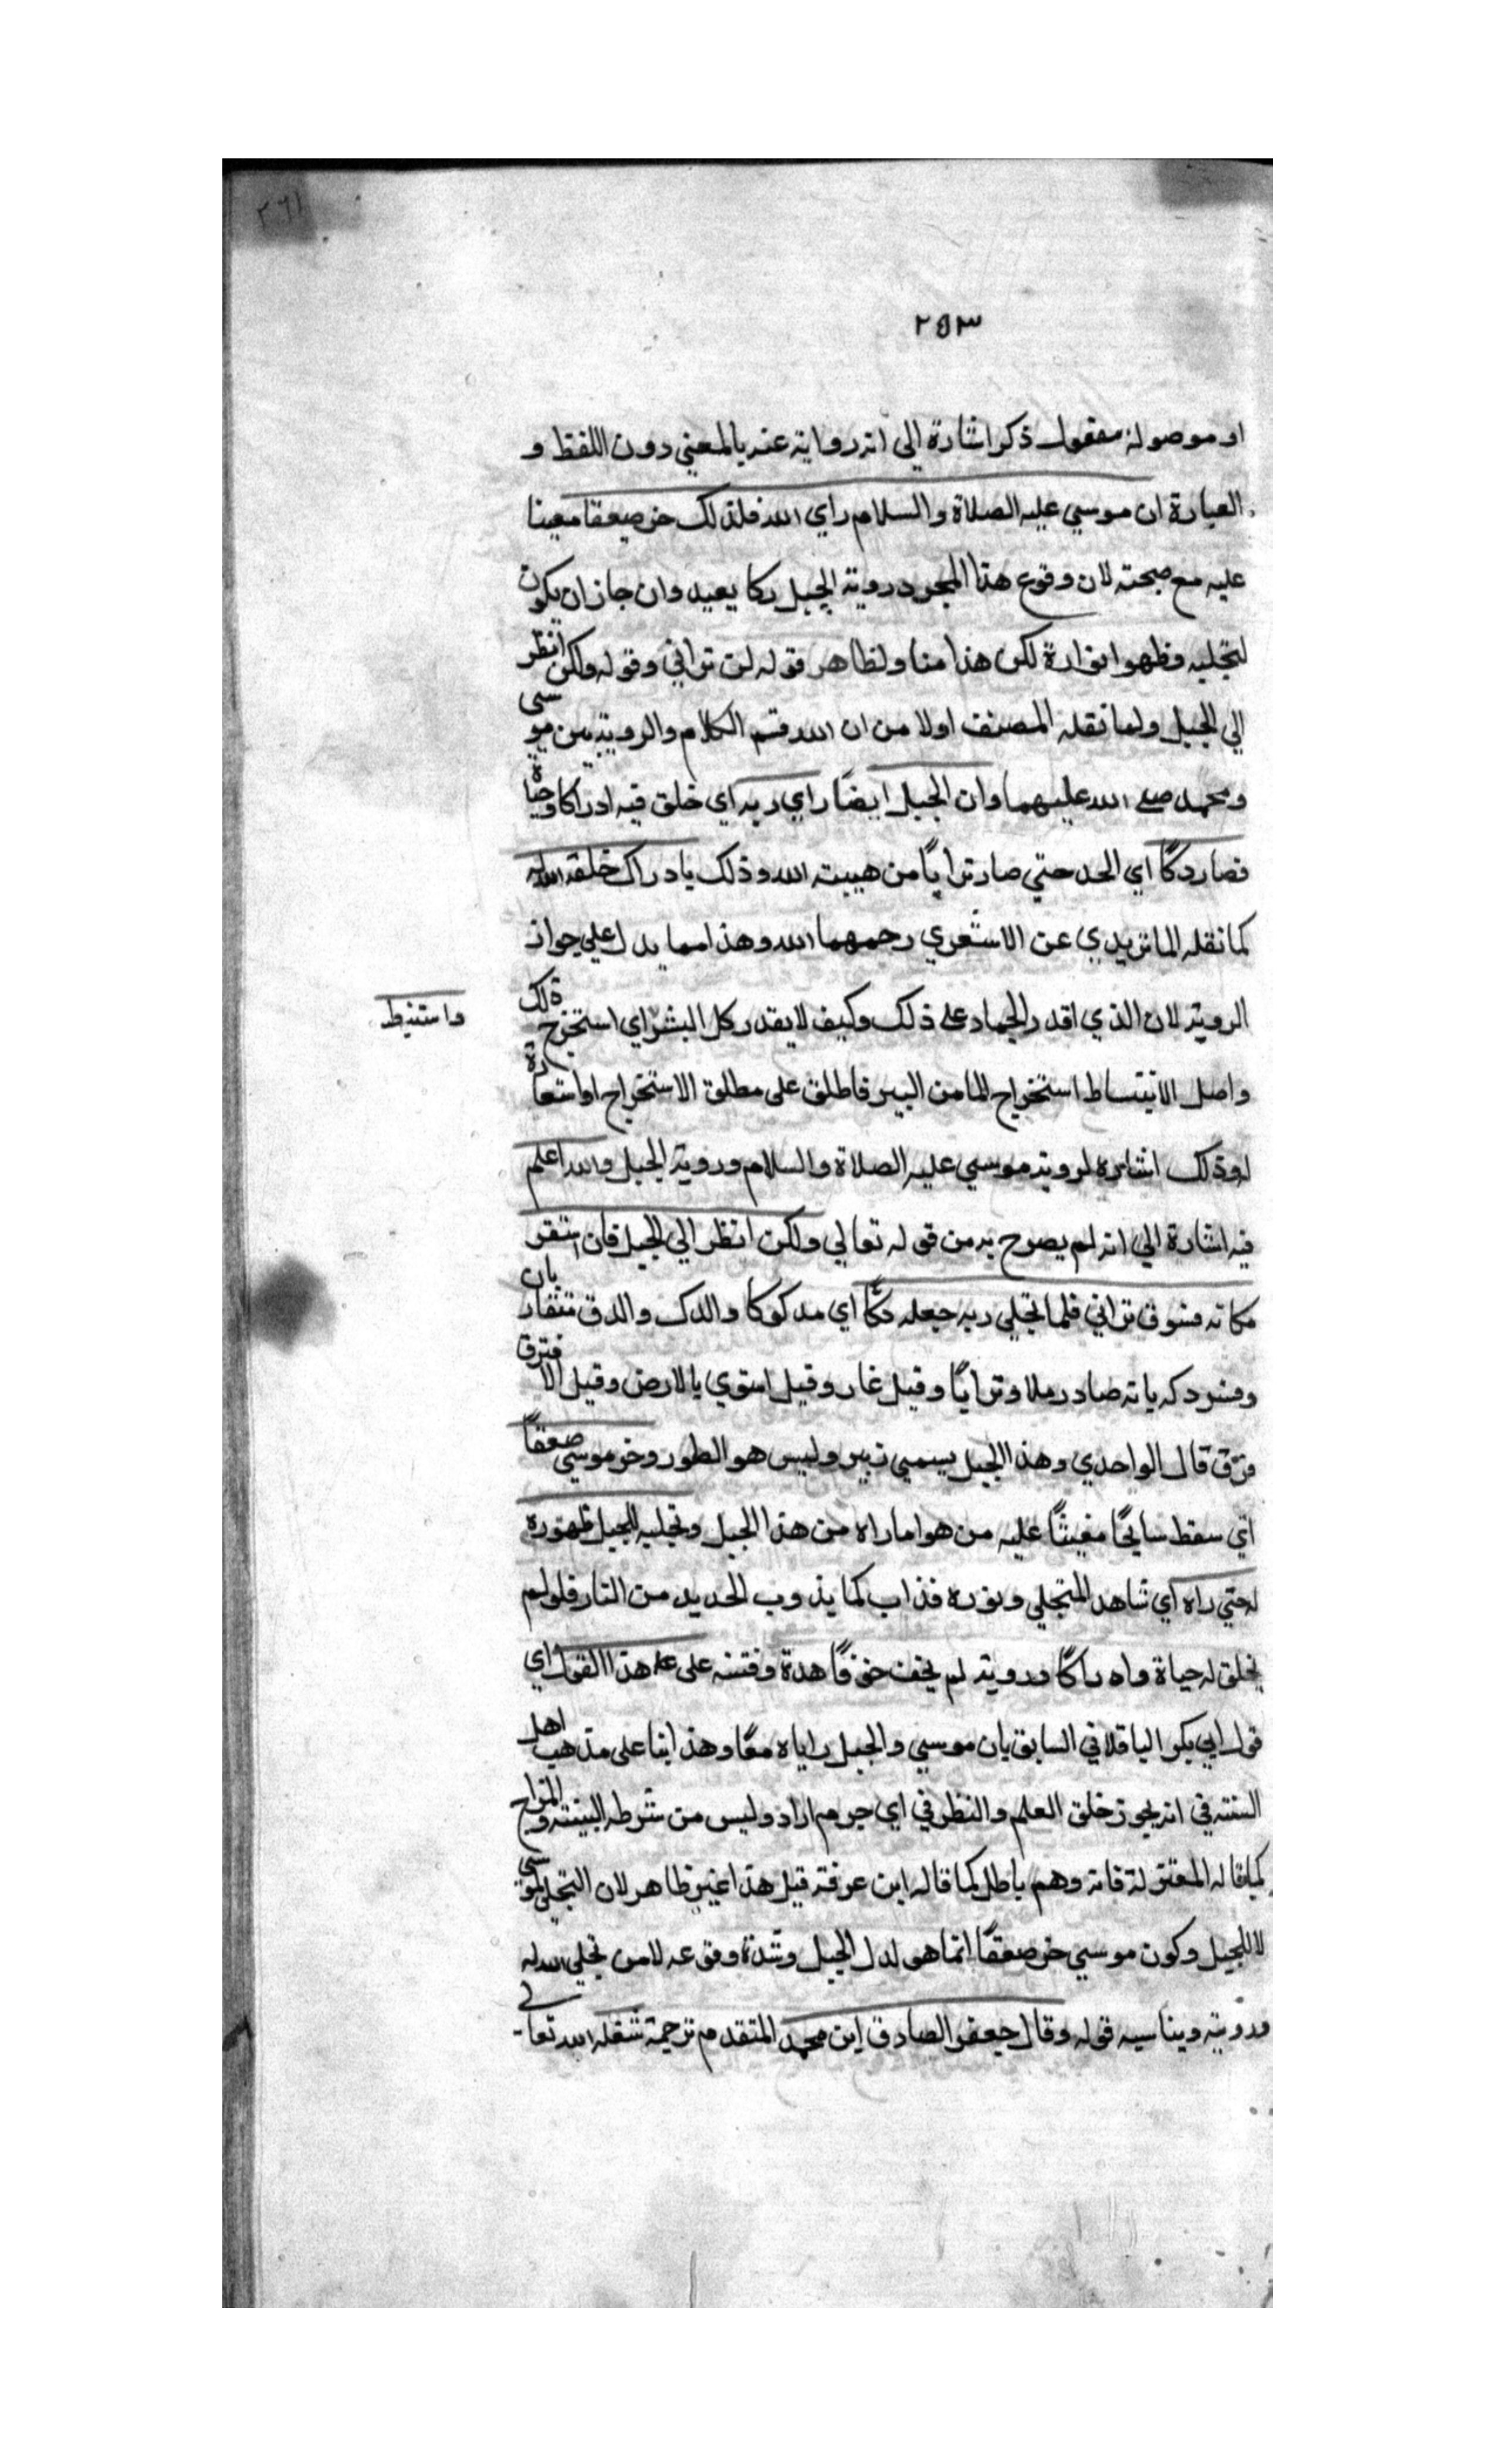 ٢٦١
٢٥٣
او موصولة مفعول ذكر اشارة الى انه رواية عنه بالمعني دون اللفظ و
العبارة ان موسي عليه الصلاة والسلام راي الله فلذلك خر صعقا مغيبا
عليه مع صحته لان وقوع هذا المجرد روية الجبل ركا بعيد وان جاز ان يكون
لتجليه وظهور انواره لكن هذا مناو لظاهر قوله لن تراني وقوله ولكن انظر
الي الجبل ولما نقله المصنف اولا من ان الله قسم الكلام والروية بين موسى
ومحمد صلى الله عليهما وان الجبل ايضًا راي ربه اي خلق فيه ادراكا وحياة
فصار دكًا اي الحد حتي صار ترابًا من هيبته الله وذلك بادراك خلقه الله له
كما نقله الماتريدي عن الاشعري رحمهما الله وهذا مما يدل علي جواز
الروية لان الذي اقدر الجماد على ذلك وكيف لا يقدر كل البشر اي استخرج ذلك
واستنبط
واصل الانتساط استخراج الما من البير فاطلق على مطلق الاستخراج او استعارة
لو ذلك اشاره لروية موسي عليه الصلاة والسلام وروية الجبل والله اعلم
فيه اشارة الي انه لم يصرح به من قوله تعالي ولكن انظر الي الجبل فان استقر
مكانه فسوف تراني فلما تجلي ربه جعله دكًا اي مدكوكا والدك والدق متقاربان
وفسر دكه بانه صار رملا وترابًا وقيل غار وقيل استوي بالارض وقيل الا فترق
فرق قال الواحدي وهذا الجبل يسمي زبير وليس هو الطور وخر موسي صعقًا
اي سقط سايحًا مغيشًا عليه من هوا ما راه من هذا الجبل وتجليه للجبل ظهوره
له حتي راه اي شاهد المتجلي ونوره فذاب كما يذوب الحديد من النار فلو لم
يخلق له حياة واه راكًا وروية لم يخف خوفًا هده وفتنه على علا هذا القول اي
قول ابي بكر الباقلاني السابق بان موسي والجبل راياه معًا وهذا بنا على مذهب اهل
السنة في انه يجوز خلق العلم والنظر في اي جرم اراد وليس من شرطه البينة والمزاج
كما قاله المعتزلة فانه وهم باطل كما قاله ابن عرفة قيل هذا غير ظاهر لان التجلي لموسي
لا للجبل وكون موسي خر صعقًا انما هو لدك الجبل وشدة وقوعه لا من تجلي الله له
وروية ويناسبه قوله وقال جعفر الصادق ابن محمد المتقدم ترجمة شغله الله تعالى